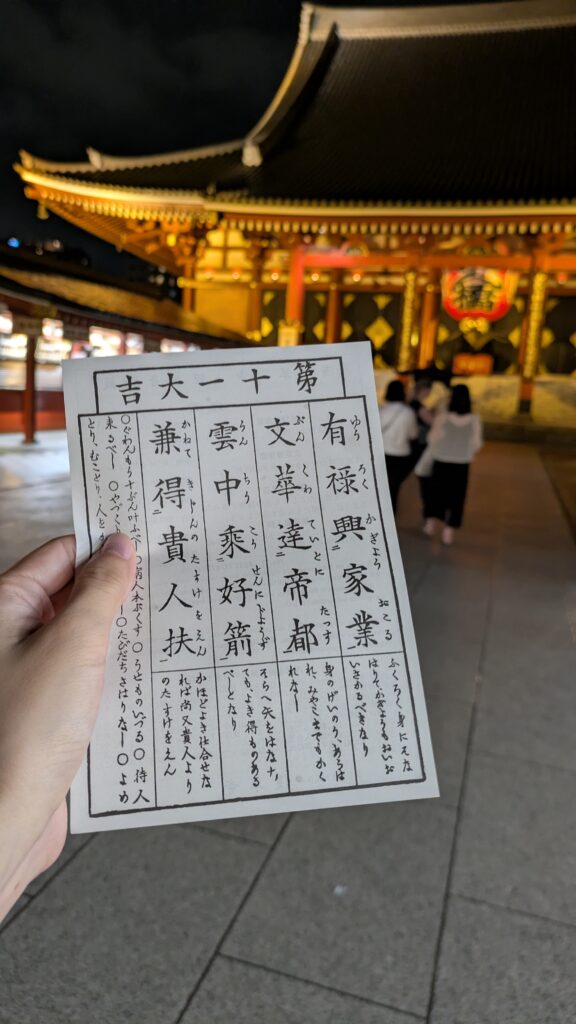 第十一大吉
有禄興家業
ゆう ろく かぎよう おこる
ふくろく身にそな
はりてかぎようもおいお
いさかるべきなり
文華達帝都
ぶん くわ ていとに たつす
身のげいのう、あらは
れ、みやこまでもかく
れなし
雲中乗好箭
うん ちう こう せんに じようず
そらへ矢をはなす
ても、よき得ものある
べしとなり
兼得貴人扶
かねて きじんの たすけをえん
かほどよき仕合せな
れば尚又貴人より
のたすけをえん
○ぐわんもう十ぶん叶ふべし○病人本ぶくす○うせものいづる○待人
来るべし○やづくり ○たびだちさはりなし○よめ
とり、むことり、人を